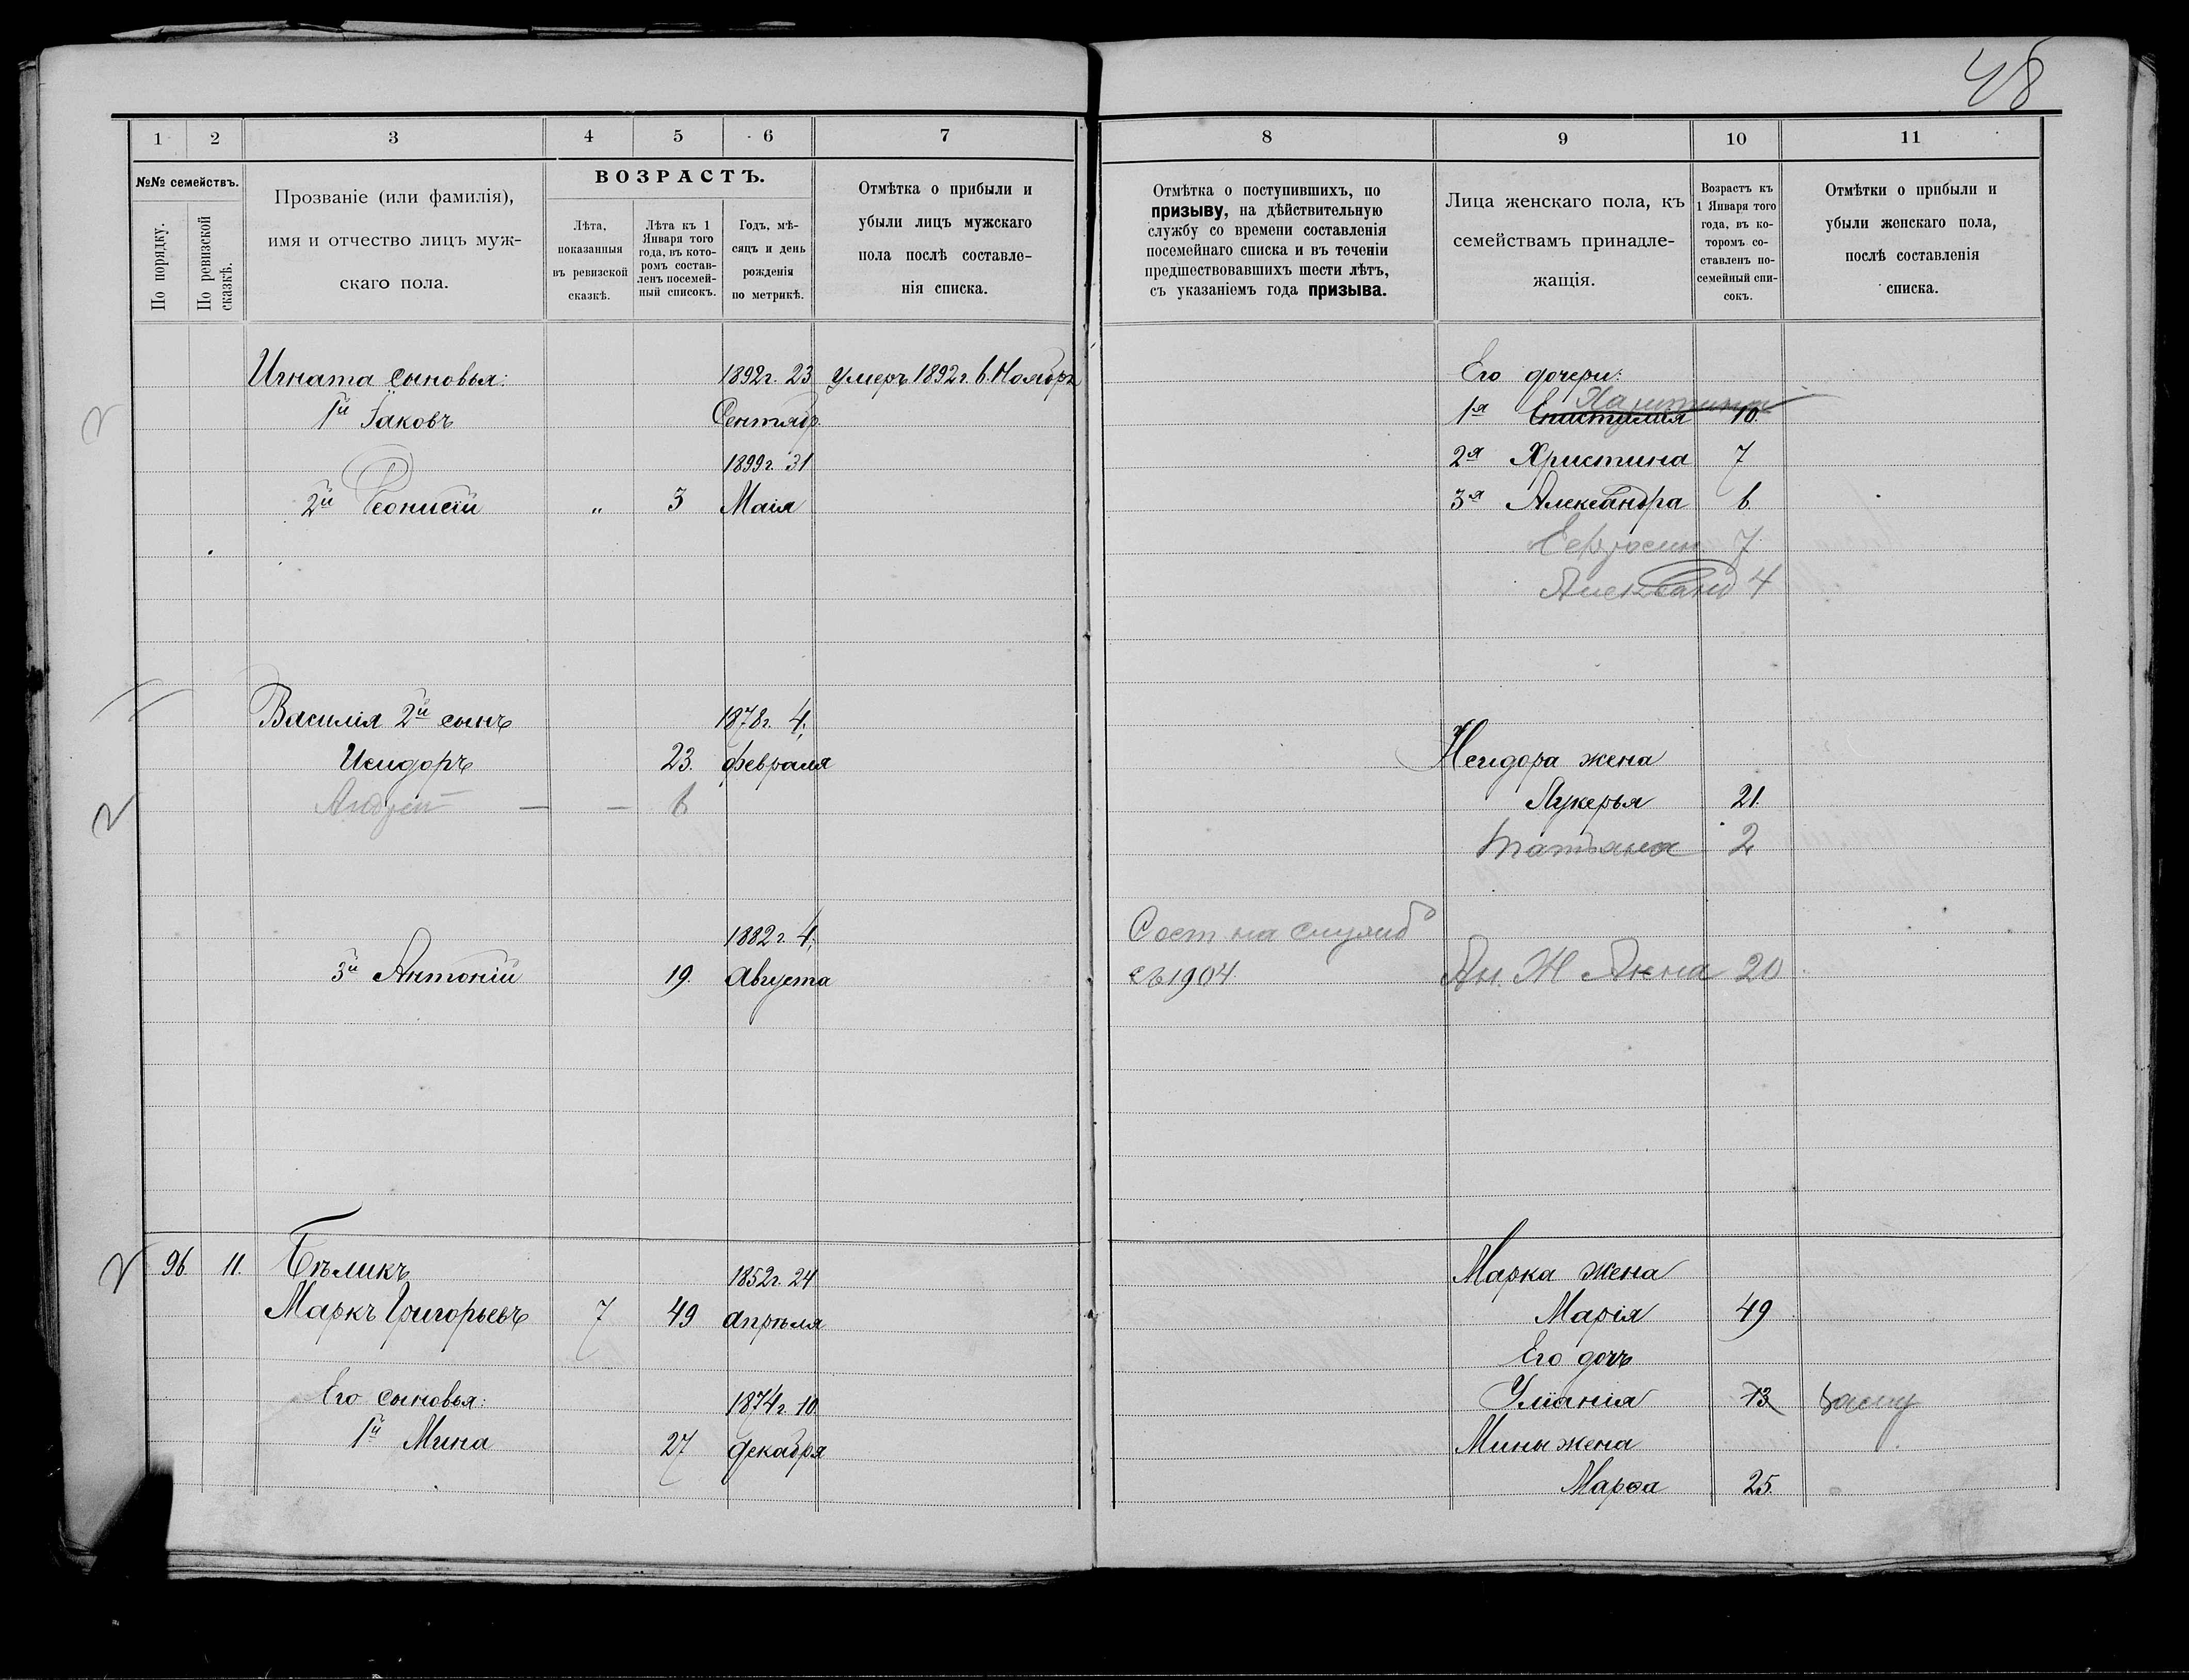 48
1 2 3 4 5 6 7
№№ семействъ.
По порядку.
По ревизской сказкѣ.
Прозваніе (или фамилія),
имя и отчество лицъ муж-
скаго пола.
ВОЗРАСТЪ.
Лѣта,
показанныя
въ ревизской
сказкѣ.
Лѣта къ 1
Января того
года, въ кото-
ромъ состав-
ленъ посемей-
ный списокъ.
Годъ, мѣ-
сяцъ и день
рожденія
по метрикѣ.
Отмѣтка о прибыли и
убыли лицъ мужскаго
пола послѣ составле-
нія списка.
Игната сыновья: 1892г. 23 умеръ 1892г. 6. Ноября
1й Іаковъ Сентябр.
1899г. 31
2й Леонисій „ 3 Маія
Василія 2й сынъ 1878г. 4,
Исидоръ 23. февраля
Андрей — — 6
1882г. 4,
3й Антоній 19. Августа
96. 11. Бѣликъ 1852г. 24
Маркъ Григорьевъ 7 49 Апрѣля
Его сыновья: 1874г. 10
1й Мина 27 декабря
8 9 10 11
Отмѣтка о поступившихъ, по
призыву, на дѣйствительную
службу со времени составленія
посемейнаго списка и въ теченіи
предшествовавшихъ шести лѣтъ,
съ указаніемъ года призыва.
Лица женскаго пола, къ
семействамъ принадле-
жащія.
Возрастъ къ
1 Января того
года, въ ко-
торомъ со-
ставленъ по-
семейный спи-
сокъ.
Отмѣтки о прибыли и
убыли женскаго пола,
послѣ составленія
списка.
Его дочери:
1я 10.
2я Христина 7
3я Александра 6.
Ефросин 7
Александ 4
Исидора жена
Лукерья 21.
Татьяна 2
Сост на служб
съ 1904. Ан. Ж Анна 20
Марка жена
Марія 49
Его дочь
Уліанія 13
Мины жена
Марѳа 25.